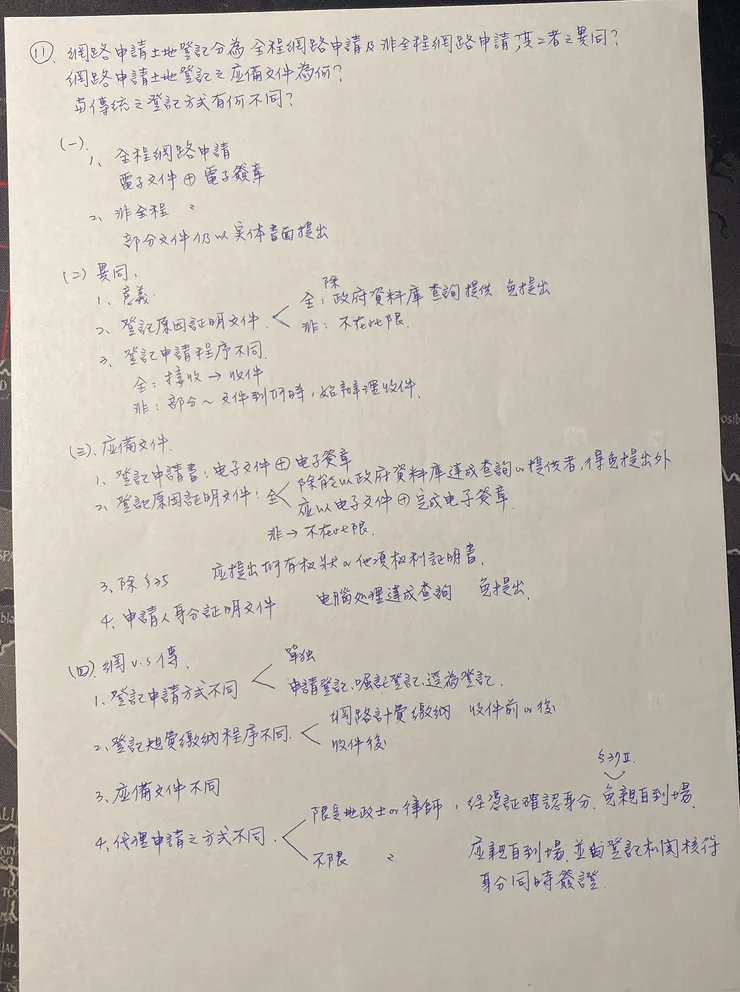 11. 網路申請土地登記分為全程網路申請及非全程網路申請,其二者之異同?
網路申請土地登記之应備文件為何?
与傳統之登記方式有何不同?
(一)
1、全程網路申請
電子文件 ⊕ 電子簽章
2、非全程 〃
部分文件仍以实体書面提出
(二) 異同.
1、意義.
2、登記原因証明文件. < 全: 除政府資料庫查詢提供 免提出
非: 不在此限.
3、登記申請程序不同.
全: 接收 → 收件
非: 部分~文件到所時,始辦理收件.
(三). 应備文件.
1、登記申請書: 电子文件 ⊕ 电子簽章
2、登記原因証明文件: 全 < 除能以政府資料庫達成查詢or提供者,得免提出外
应以电子文件 ⊕ 完成电子簽章.
非 → 不在此限.
3、除§35 应提出所有权狀 or 他項权利証明書.
4、申請人身分証明文件 电腦处理達成查詢 免提出.
(四). 網 v.s 傳.
1、登記申請方式不同 < 單独
申請登記、囑託登記、逕為登記.
2、登記規費繳納程序不同. < 網路計費繳納 收件前or後
收件後
3、应備文件不同
§37Ⅱ.
4、代理申請之方式不同. < 限是地政士or律師,経憑証確認身分.免親自到場.
不限 〃 应親自到場.並由登記机関核符
身分同時簽證.